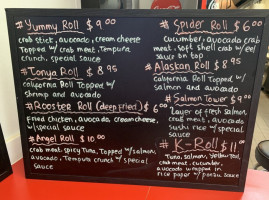 #Yummy Roll $9.00
crab stick, avocado, cream cheese
Topped w/ crab meat, Tempura
crunch, special sauce
#Tonya Roll $8.95
california Roll Topped w/
shrimp and avocado
#Rooster Roll (deep fried) $6.00
Fried chicken, avocado, cream cheese,
w/ special sauce
#Angel Roll $10.00
crab meat, spicy Tuna, Topped w/ salmon,
avocado, Tempura crunch w/ special
sauce
#Spider Roll $6.00
cucumber, avocado, crab
meat, soft shell crab w/ eel
sauce on top
#Alaskan Roll $8.95
california Roll Topped w/
salmon and avocado
#Salmon Tower $9.00
Layer of fresh salmon,
crab meat, avocado,
sushi rice w/ special
sauce
#K-Roll $11.00
Tuna, salmon, yellowtail,
crab meat, cucumber,
avocado wrapped in
rice paper w/ ponzu sauce